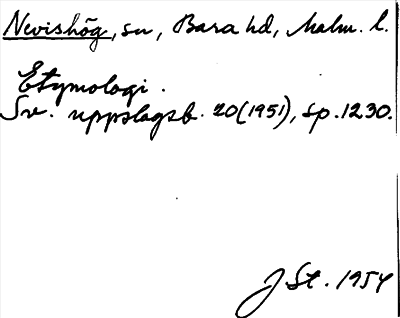 Nevishög, sn, Bara hd, Malm. l.
Etymologi.
Sv. uppslagsb. 20(1951), sp. 1230.
J St. 1954